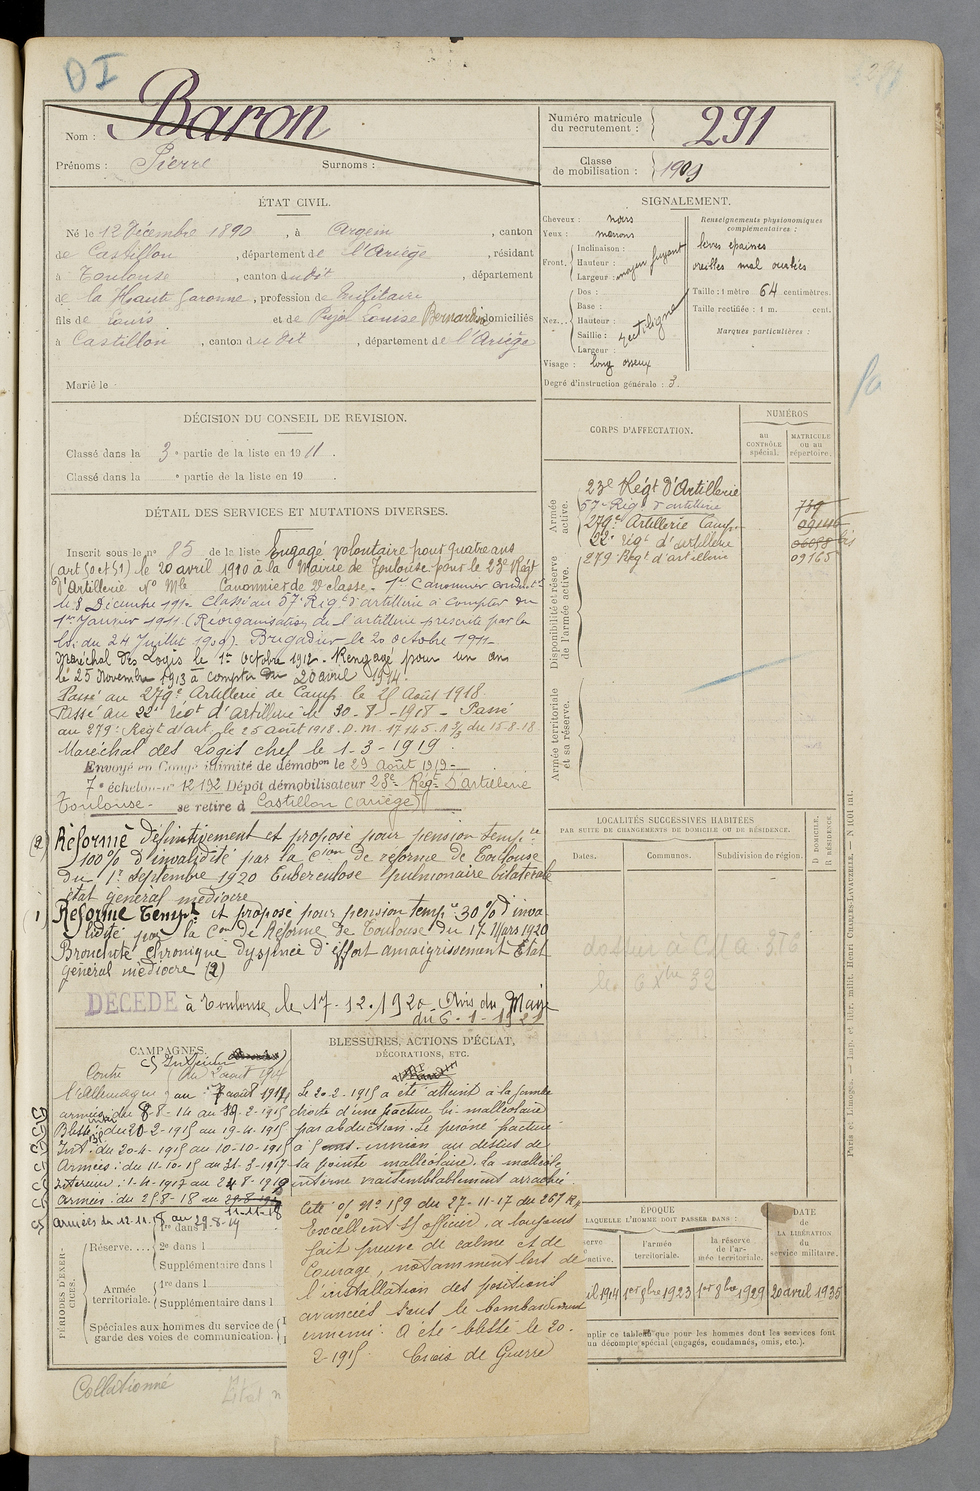 DI
Nom : Baron
Prénoms : Pierre Surnoms :
Numéro matricule du recrutement : 291
Classe de mobilisation : 1909
ÉTAT CIVIL.
Né le 12 Décembre 1890, à Argein, canton
de Castillon, département de l'Ariège, résidant
à Toulouse, canton dudit, département
de la Haute Garonne, profession de Militaire
fils de Louis et de Pujol Louise Bernardine domiciliés
à Castillon, canton du dit, département de l'Ariège
Marié le
SIGNALEMENT.
Cheveux : noirs
Yeux : marrons
Front. Inclinaison :
Hauteur : moyen fuyant
Largeur :
Nez... Dos :
Base :
Hauteur : rectiligne
Saillie :
Largeur :
Visage : long osseux
Degré d'instruction générale : 3.
Renseignements physionomiques complémentaires :
lèvres épaisses
oreilles mal ourlées
Taille : 1 mètre 64 centimètres.
Taille rectifiée : 1 m. cent.
Marques particulières :
DÉCISION DU CONSEIL DE REVISION.
Classé dans la 3e partie de la liste en 1911.
Classé dans la e partie de la liste en 19
DÉTAIL DES SERVICES ET MUTATIONS DIVERSES.
Inscrit sous le no 85 de la liste Engagé volontaire pour quatre ans
(art 50 et 51) le 20 avril 1910 à la Mairie de Toulouse pour le 23e Régt
d'Artillerie No Mle Canonnier de 2e classe. 1er Canonnier conduct
le 8 Décembre 1910 Classé au 57e Régt d'artillerie à compter du
1er Janvier 1911 (Réorganisation de l'artillerie prescrite par la
loi du 24 Juillet 1909). Brigadier le 20 octobre 1911
Maréchal des Logis le 1er Octobre 1912. Rengagé pour un an
le 25 Novembre 1913 à compter du 20 avril 1914.
Passé au 279e Artillerie de Camp. le 25 Août 1918.
Passé au 22e régt d'Artillerie le 30-8-1918 - Passé
au 279e Régt d'art. le 25 août 1918. D.M. 17145. 1 3/3 du 15-8-18
Maréchal des Logis chef le 1-3-1919.
Envoyé en Congé illimité de démobon le 29 Août 1919
7e échelon no 12192 Dépôt démobilisateur 23e Régt d'Artillerie
Toulouse - se retire à Castillon (Ariège)
(2) Réformé définitivement et proposé pour pension temp.re
100% d'invalidité par la Cion de réforme de Toulouse
du 1er septembre 1920 Tuberculose pulmonaire bilatérale
état général médiocre
(1) Réformé Tempt et proposé pour pension temp.re 30% d'inva-
lidité par la Con de Réforme de Toulouse du 17 Mars 1920
Bronchite chronique dyspnée d'effort amaigrissement Etat
général médiocre (2)
DECEDE à Toulouse le 17.12.1920 Avis du Maire
du 6.1.1921
CORPS D'AFFECTATION.
NUMÉROS
au CONTRÔLE spécial.
MATRICULE ou au répertoire.
Armée active.
23e Régt d'Artillerie
57e Régt d'artillerie 739
279e Artillerie Camp.
22e régt d'artillerie bis
279 Régt d'artillerie 09165
Disponibilité et réserve de l'armée active.
Armée territoriale et sa réserve.
LOCALITÉS SUCCESSIVES HABITÉES
PAR SUITE DE CHANGEMENTS DE DOMICILE OU DE RÉSIDENCE.
Dates. Communes. Subdivision de région. D DOMICILE. R RÉSIDENCE
CAMPAGNES.
Contre
l'Allemagne
armées du 8-8-14 au 19-2-1915
Blessé du 20-2-1915 au 19-4-1915
Int. du 20-4-1915 au 10-10-1915
Armées : du 11-10-15 au 31-3-1917
Intérieur : 1-4-1917 au 24-8-1918
Armées : du 25-8-18 au
11-11-18
Armées du 12-11-18 au 29-8-19
PÉRIODES D'EXERCICES.
Réserve.... 1re dans l
2e dans l
Supplémentaire dans l
Armée territoriale. 1re dans l
Supplémentaire dans l
Spéciales aux hommes du service de garde des voies de communication.
BLESSURES, ACTIONS D'ÉCLAT, DÉCORATIONS, ETC.
Le 20-2-1915 a été atteint à la jambe
droite d'une fracture bi-malléolaire
par abduction. Le péroné fracturé
à 5 cent. environ au dessus de
la pointe malléolaire. La malléole
interne vraisemblablement arrachée.
Cité o/ No 159 du 27-11-17 du 267 RA
Excellent S/ officier, a toujours
fait preuve de calme et de
Courage, notamment lors de
l'installation des positions
avancées sous le bombardement
ennemi. A été blessé le 20-
2-1915. Croix de Guerre
ÉPOQUE
LAQUELLE L'HOMME DOIT PASSER DANS :
l'armée territoriale.
la réserve de l'armée territoriale.
DATE de LA LIBÉRATION du service militaire.
1914 1er 8bre 1923 1er 8bre 1929 20 avril 1935
mplir ce tableau que pour les hommes dont les services font
un décompte spécial (engagés, condamnés, omis, etc.).
Paris et Limoges. — Imp. et libr. milit. Henri CHARLES-LAVAUZELLE.
Collationné